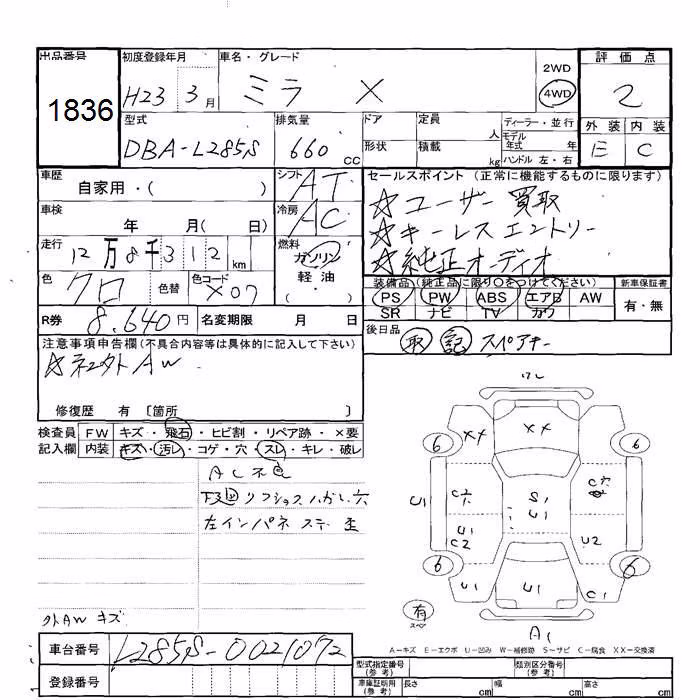 出品番号 初度登録年月 車名・グレード 2WD 評価点
1836 H23 3月 ミラ X 4WD 2
型式 排気量 ドア 定員 人 ディーラー・並行 外装 内装
モデル年式 年
DBA-L285S 660cc 形状 積載 kg ハンドル 左・右 E C
車歴 自家用・( ) シフト AT セールスポイント (正常に機能するものに限ります)
☆ユーザー買取
車検 年 月( 日) 冷房 AC ☆キーレスエントリー
走行 12万8千312km 燃料 ガソリン 軽油 ( ) ☆純正オーディオ
色 クロ 色替 色コード X07 装備品(純正品に限り○をつけてください) 新車保証書
PS PW ABS エアB AW 有・無
SR ナビ TV カワ
R券 8.640円 名変期限 月 日 後日品 取 記 スペアキー
注意事項申告欄(不具合内容等は具体的に記入して下さい)
外AW
修復歴 有 〔箇所 〕
検査員 FW キズ・飛石・ヒビ割・リペア跡・×要
記入欄 内装 キズ・汚レ・コゲ・穴・スレ・キレ・破レ
AC不良
左インパネ
外AWキズ
ワレ
XX XX
6 6
U1 S1 U1
U1 C2 U2
6 6
U1 U1 C1
有 スペア
A1
A−キズ E−エクボ U−凹み W−補修跡 S−サビ C−腐食 XX−交換済
車台番号 L285S-0021072
登録番号
型式指定番号(参考) 類別区分番号(参考)
車庫証明用(参考) 長さ cm 幅 cm 高さ cm